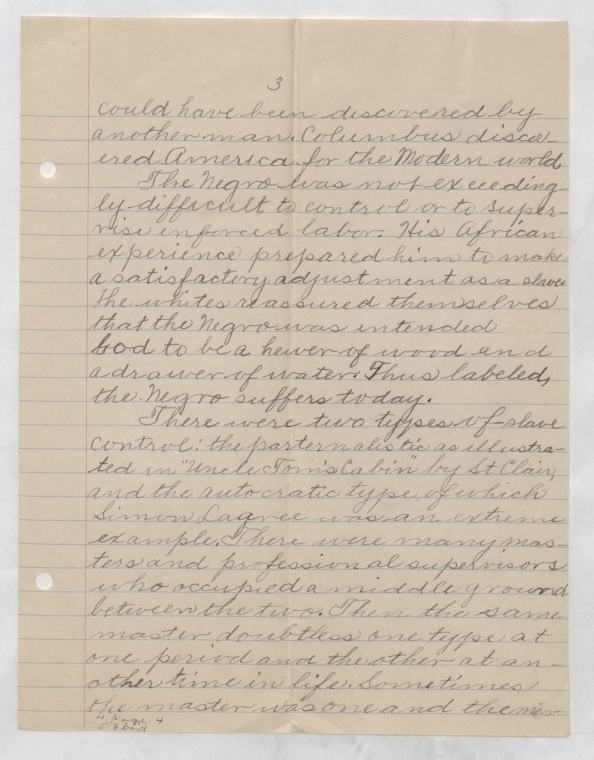 3
could have been discovered by
another man. Columbus discov-
ered America for the Modern world
The Negro was not exceeding-
ly difficult to control or to super-
vise enforced labor. His African
experience prepared him to make
a satisfactory adjustment as a slave
The whites reassured themselves
that the Negro was intended
God to be a hewer of wood and
a drawer of water. Thus labeled,
the Negro suffers today.
There were two types of slave
control: the parternalistic as illustra-
ted in "Uncle Tom's Cabin" by St Clair,
and the autocratic type, of which
Simon Lagree was an extreme
example. There were many mas-
ters and professional supervisors
who occupied a middle ground
between the two. Then the same
master doubtless one type at
one period and the other at an-
other time in life. Sometimes
the master was one and the mis-